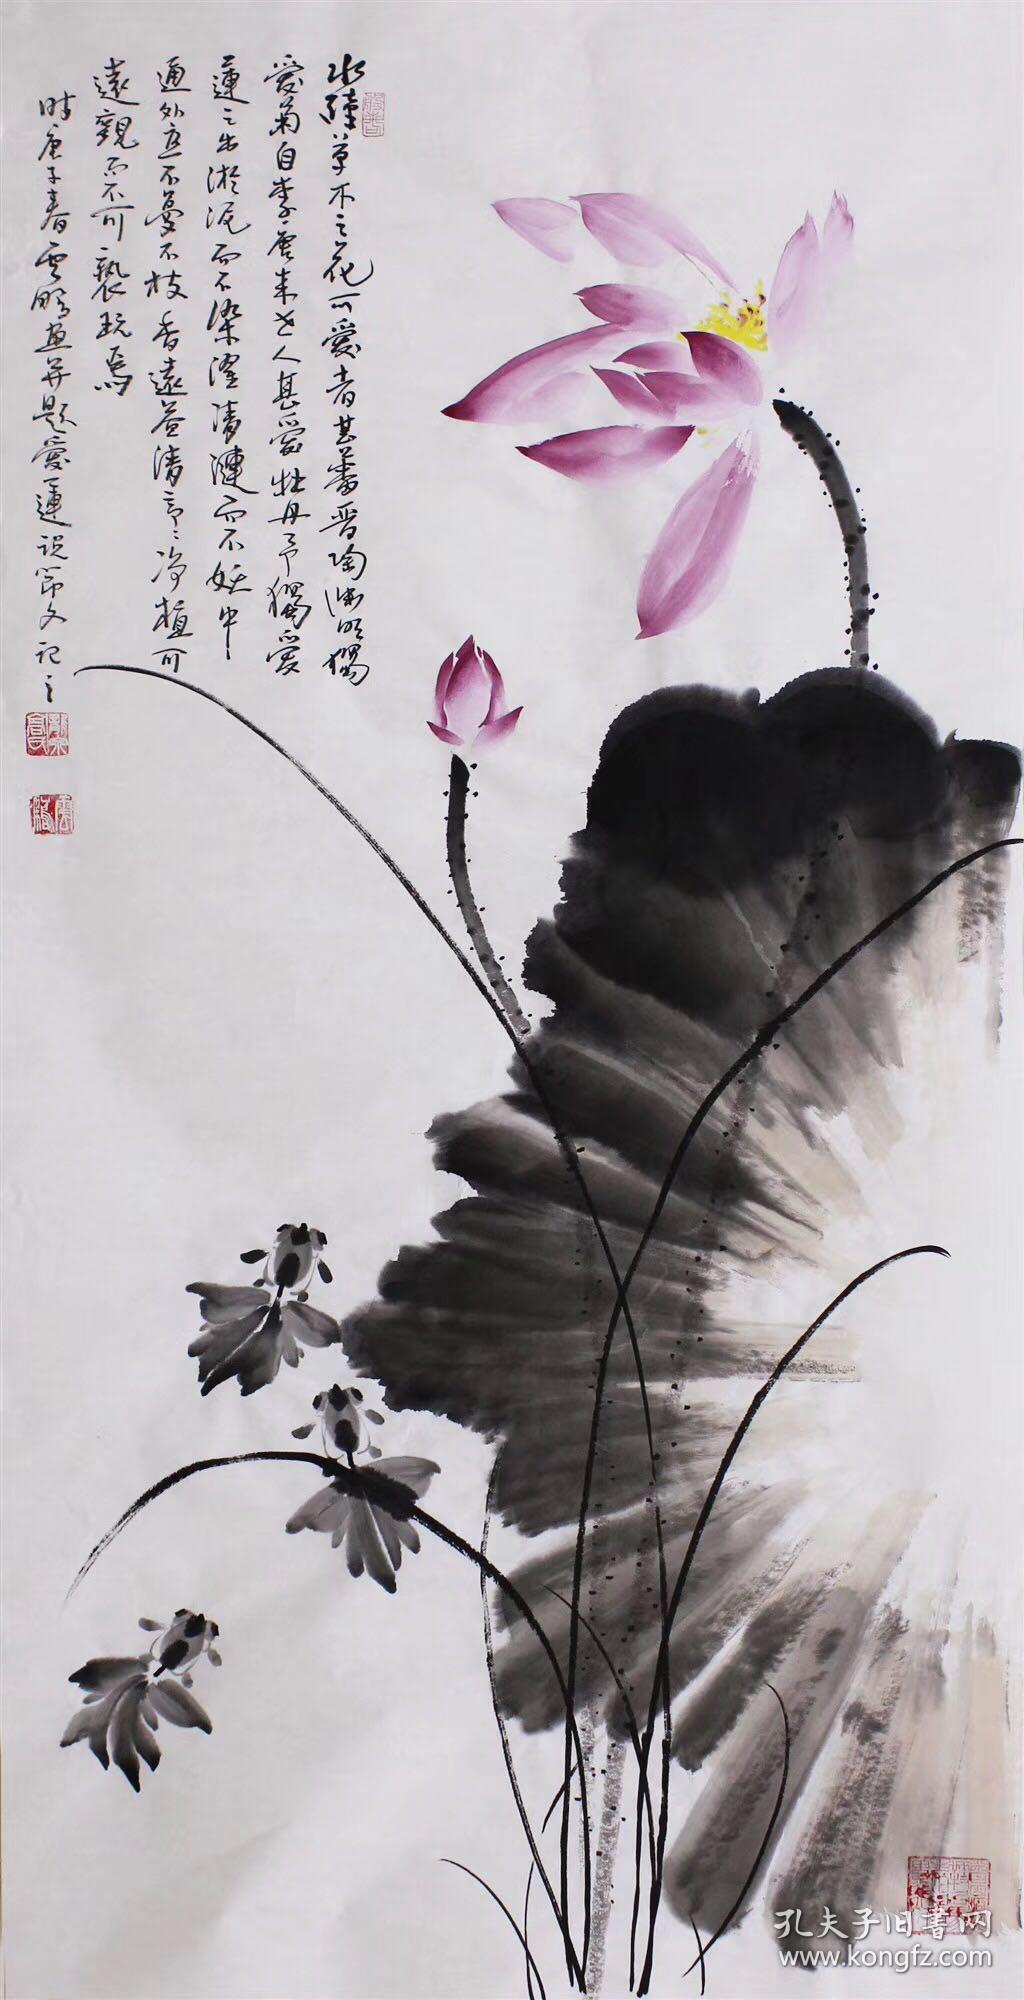 水陸草木之花可愛者甚蕃晉陶淵明獨
愛菊自李唐来世人甚愛牡丹予獨愛
蓮之出淤泥而不染濯清漣而不妖中
通外直不蔓不枝香遠益清亭〻净植可
遠觀而不可褻玩焉
時庚子春雲鵬畫並題愛蓮説節文記之
孔夫子旧书网
www.kongfz.com